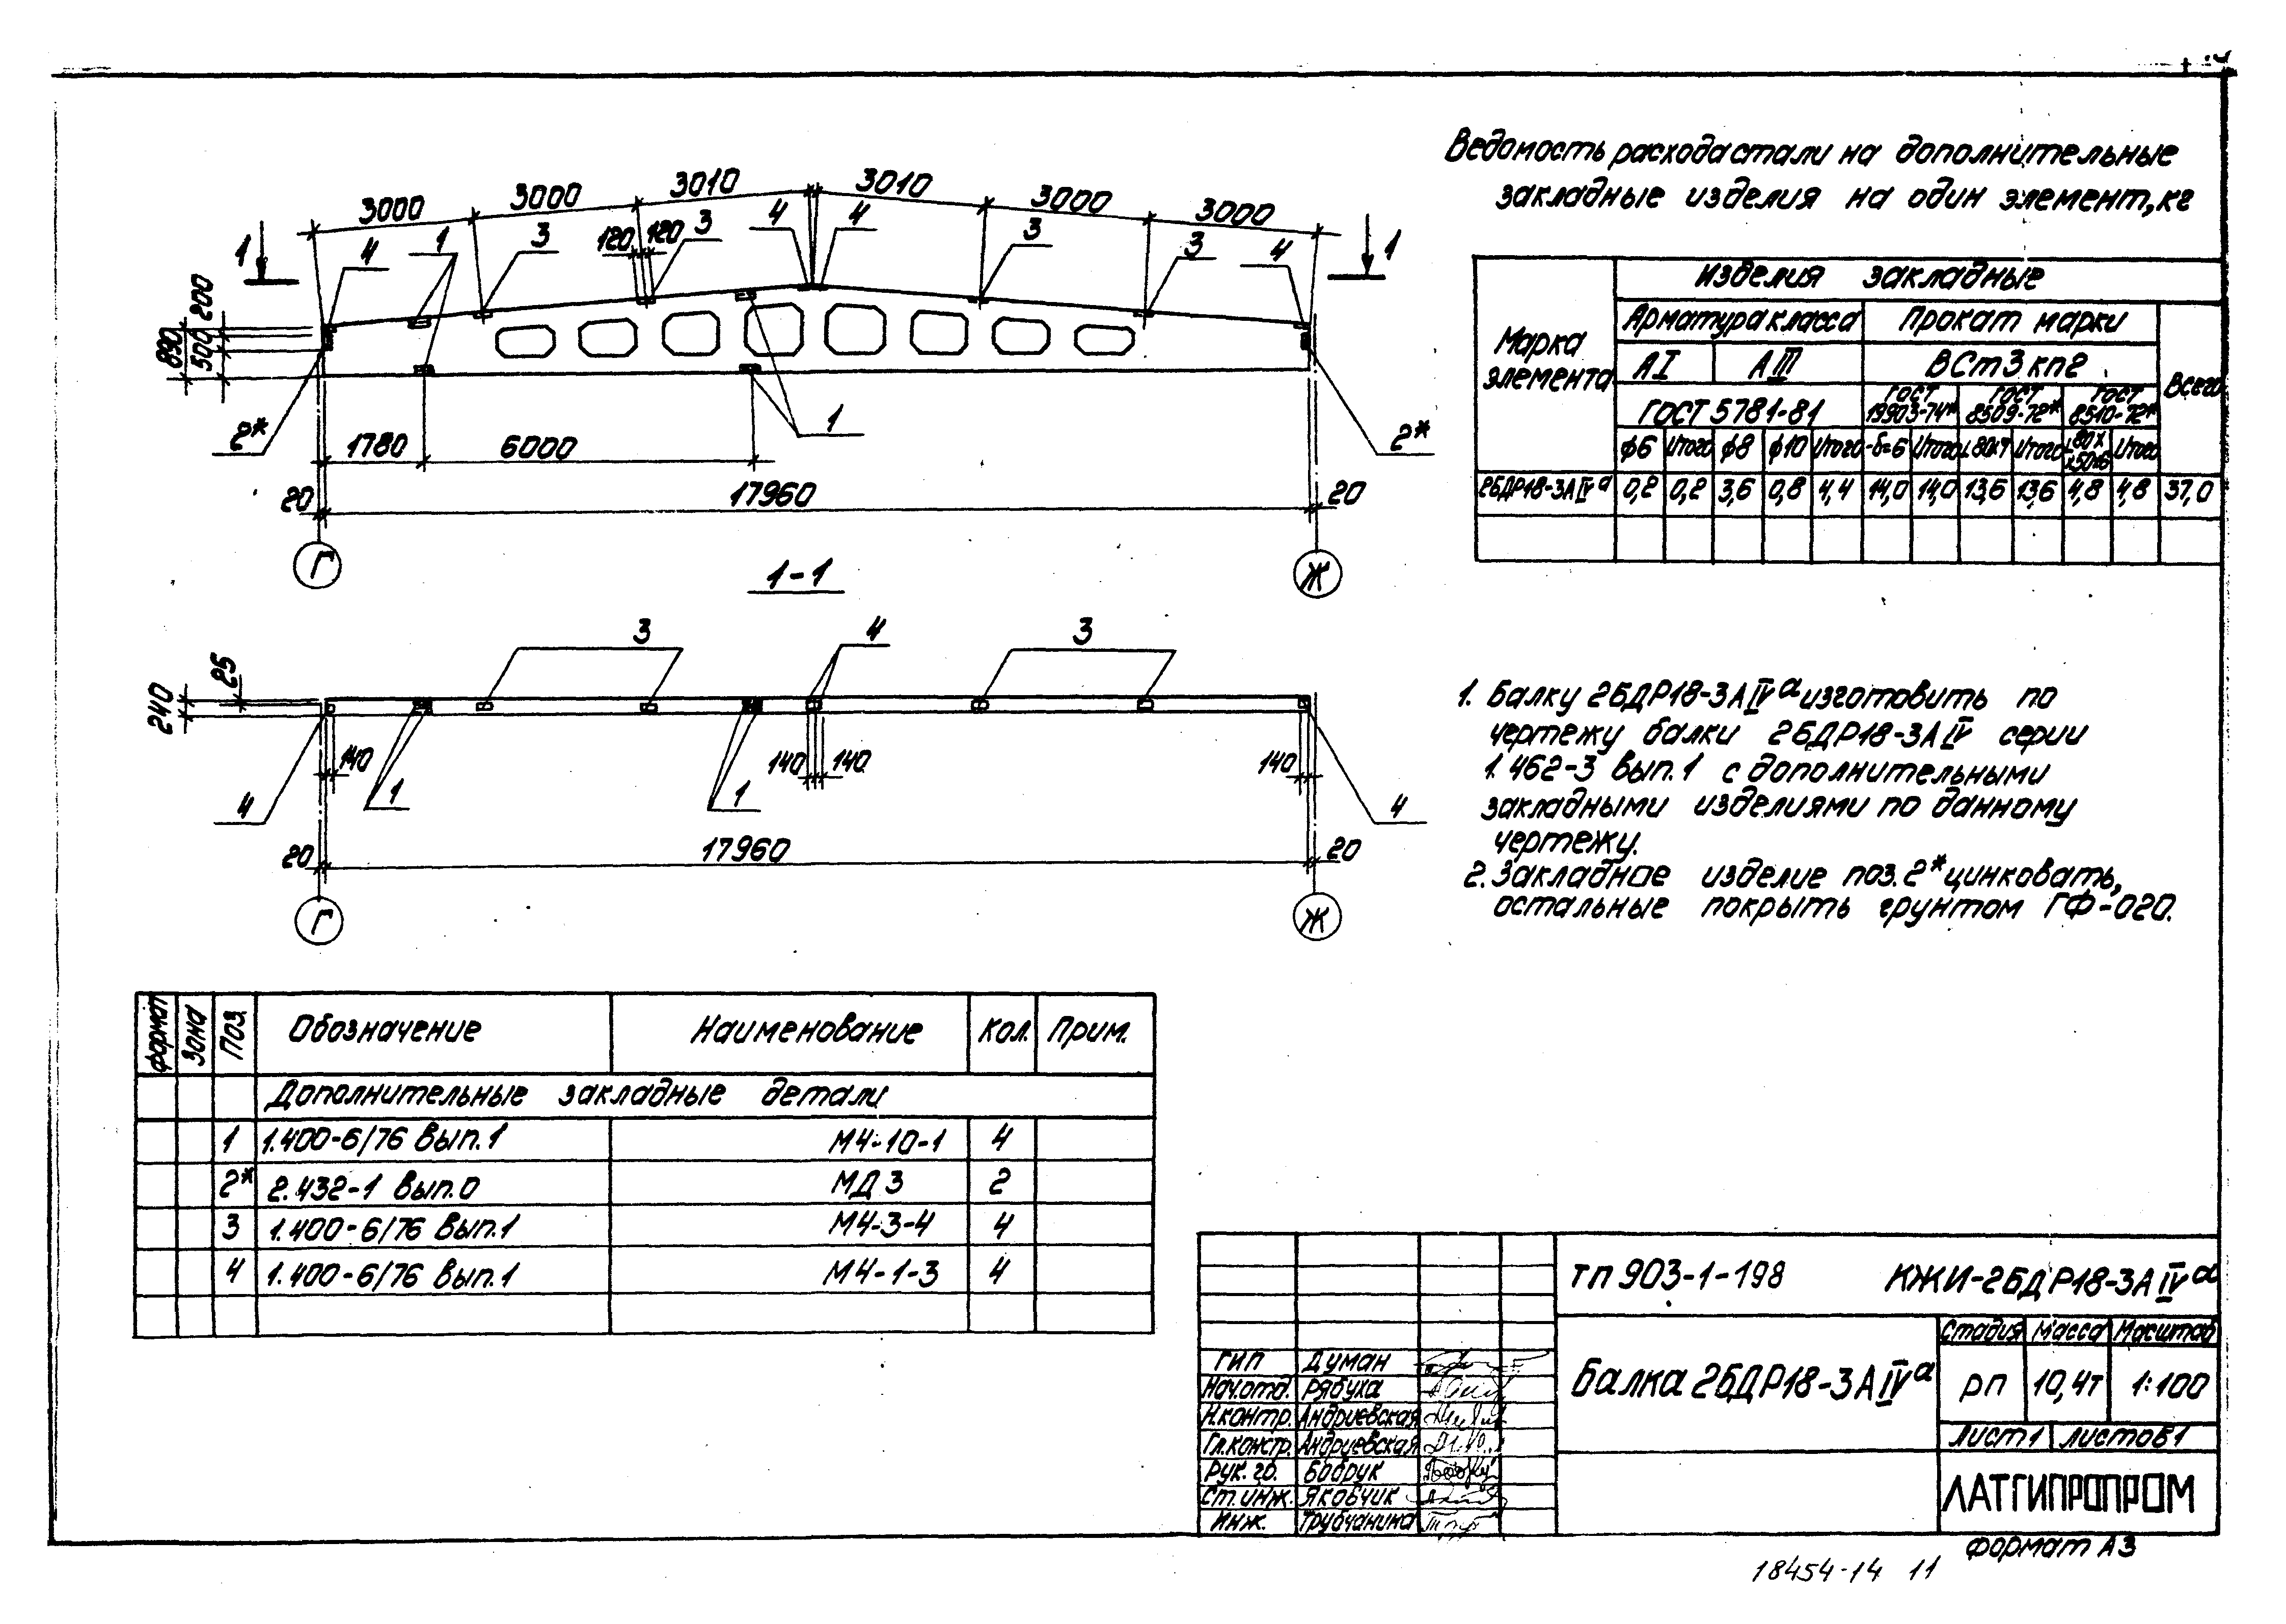 3000
3000
3010
3010
3000
3000
1
4
1
3
120
120
3
4
4
3
3
4
1
200
890
500
2*
1
2*
1780
6000
20
17960
20
Г
Ж
1-1
3
4
3
25
240
140
1
140
140
1
140
4
4
20
17960
20
Г
Ж
Ведомость расхода стали на дополнительные
закладные изделия на один элемент, кг
Марка элемента
Изделия закладные
Арматура класса
Прокат марки
Всего
АI
АIII
ВСт3кп2
ГОСТ 5781-81
ГОСТ 19903-74*
ГОСТ 8509-72*
ГОСТ 8510-72*
ф6 Итого ф8 ф10 Итого -δ=6 Итого Итого Итого
2БДР18-3АIVа 0,2 0,2 3,6 0,8 4,4 14,0 14,0 13,6 13,6 4,8 4,8 37,0
1. Балку 2БДР18-3АIVа изготовить по
чертежу балки 2БДР18-3АIV серии
1.462-3 вып.1 с дополнительными
закладными изделиями по данному
чертежу.
2. Закладное изделие поз.2* цинковать,
остальные покрыть грунтом ГФ-020.
формат Зона Поз. Обозначение Наименование Кол. Прим.
Дополнительные закладные детали
1 1.400-6/76 вып.1 М4-10-1 4
2* 2.432-1 вып.0 МД3 2
3 1.400-6/76 вып.1 М4-3-4 4
4 1.400-6/76 вып.1 М4-1-3 4
ТП 903-1-198 КЖИ-2БДР18-3АIVа
Балка 2БДР18-3АIVа
Стадия Масса Масштаб
РП 10,4т 1:100
Лист 1 Листов 1
ГИП Думан
Нач.отд. Рябуха
Н.контр. Андриевская
Гл.констр. Андриевская
Рук.гр. Бобрук
Ст.инж. Якобчик
Инж. Трубчанина
ЛАТГИПРОПРОМ
Формат А3
18454-14 11